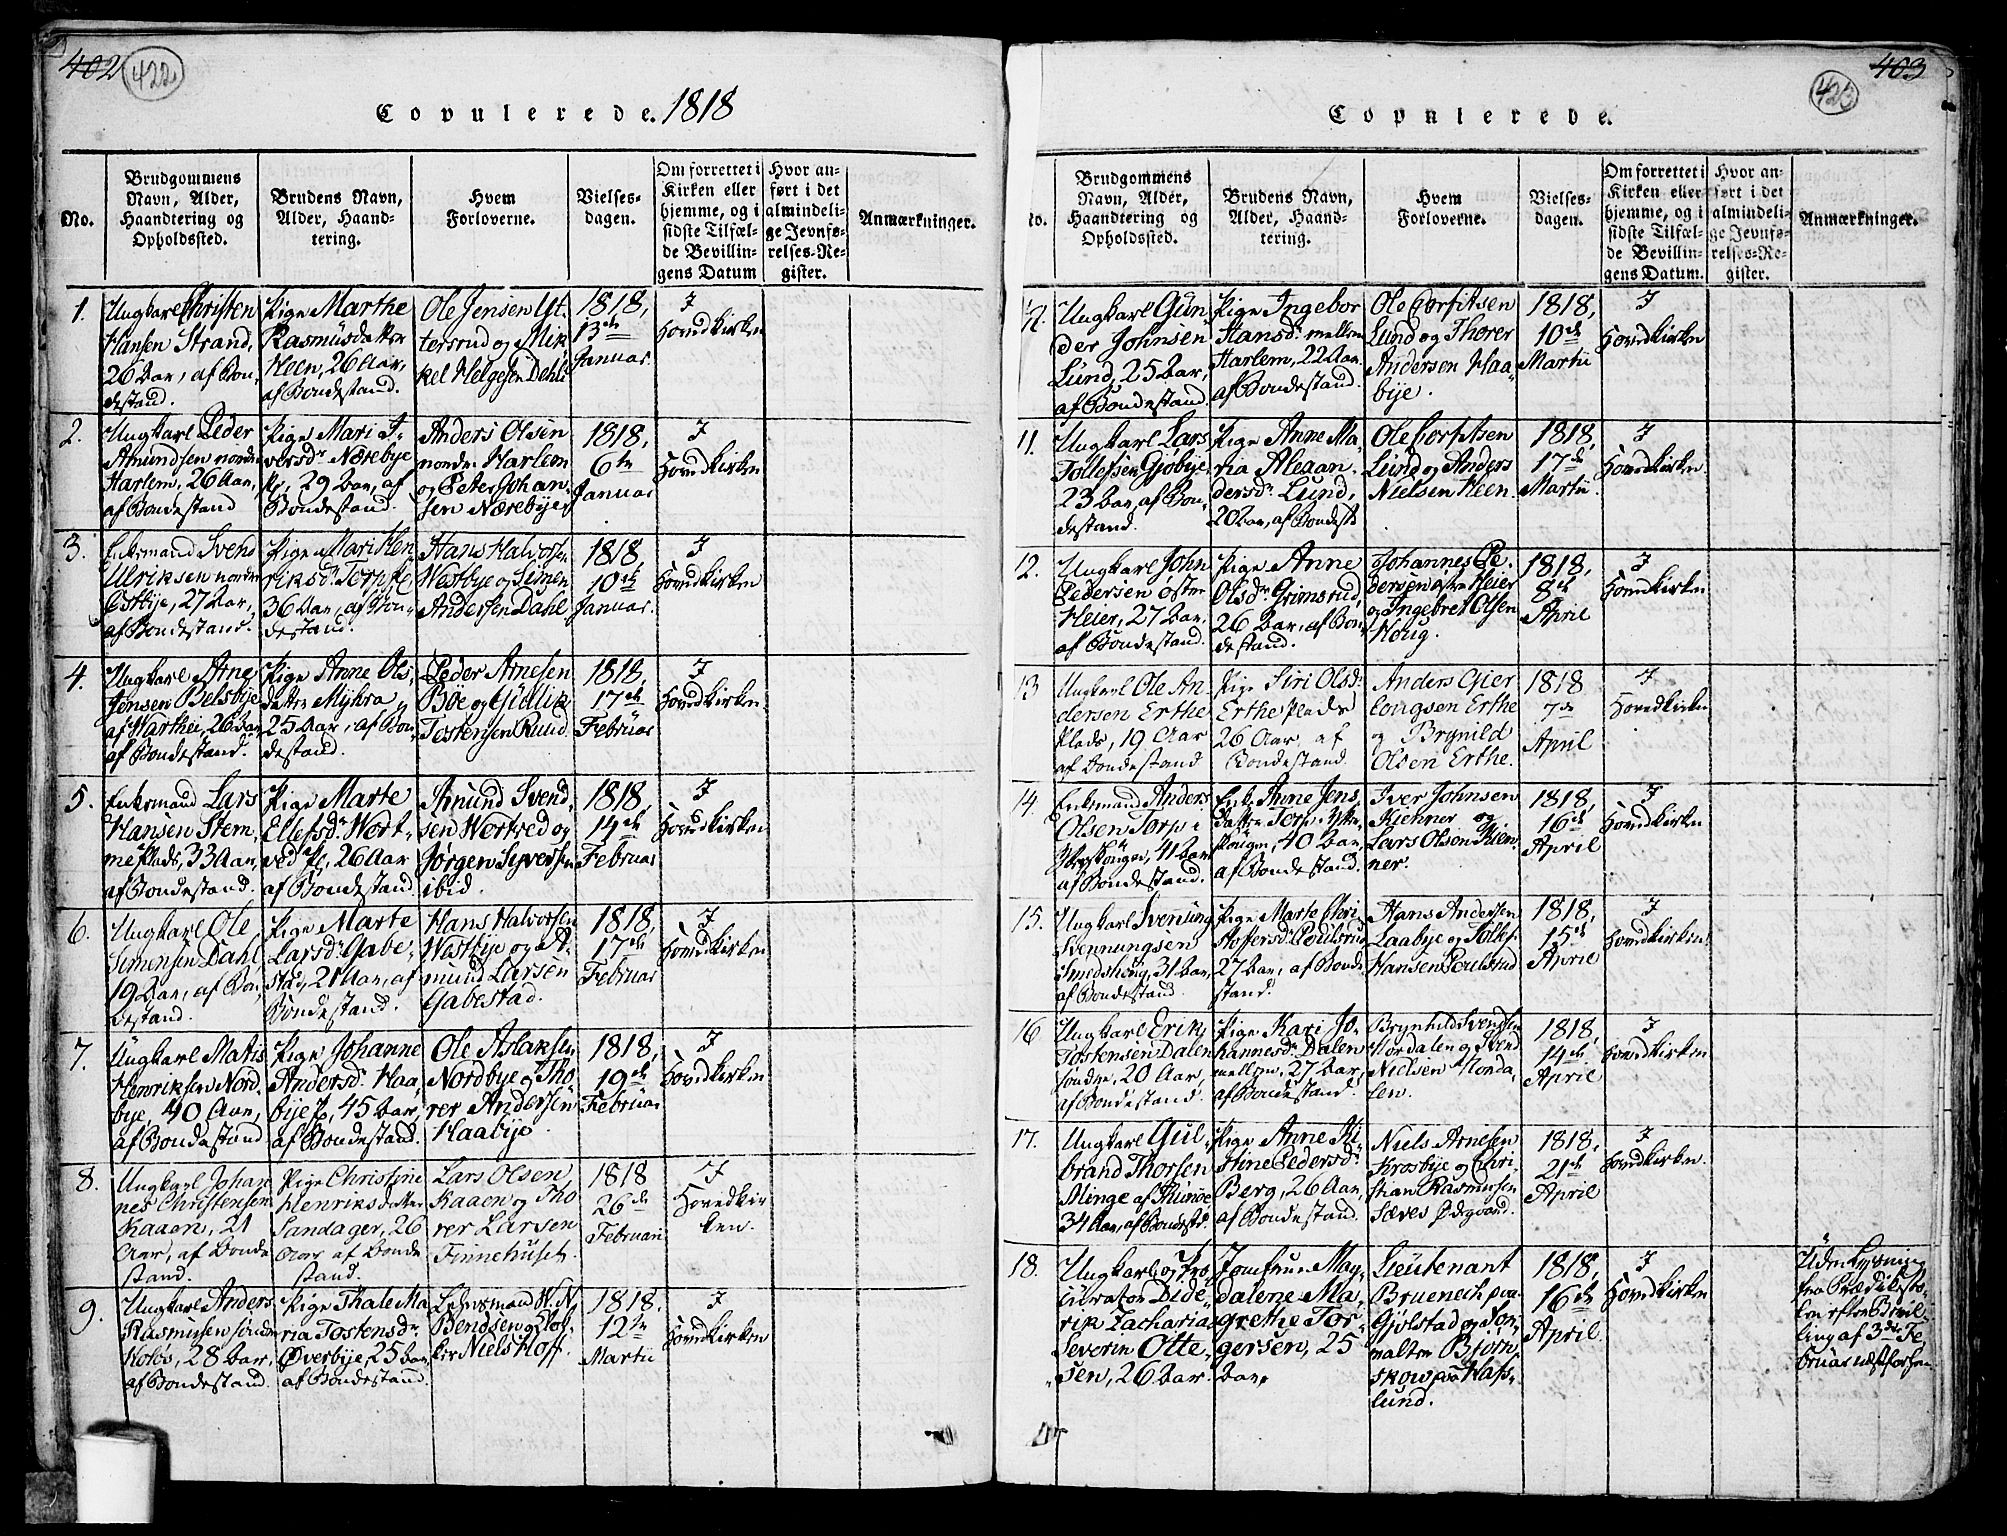 402
422
Copulerede. 1818
No.
Brudgommens
Navn, Alder,
Haandtering og
Opholdssted.
Brudens Navn,
Alder, Haand-
tering.
Hvem
Forloverne.
Vielses-
dagen.
Om forrettet i
Kirken eller
hjemme, og i
sidste Tilfæl-
de Bevillin-
gens Datum
Hvor an-
ført i det
almindeli-
ge Jevnfø-
relses-Re-
gister.
Anmærkninger.
1.
Ungkarl Christen
Hansen Strand,
26 Aar, af Bon-
destand.
Pige Marthe
Rasmusdatter
Heen, 26 Aar,
af Bondestand.
Ole Jensen Ut-
tersrud og Mik-
kel Helgesen Dehli
1818,
13de
Januar.
I
Hovedkirken
2.
Ungkarl Peder
Amundsen nordre
Harlem, 26 Aar,
af Bondestand
Pige Mari I-
versdr Nærebye
Pl, 29 Aar, af
Bondestand.
Anders Olsen
nordre Harlem
og Peter Johan-
sen Nærebye
1818,
6te
Januar
I
Hovedkirken
3.
Enkemand Svend
Ulriksen nordre
Østbye, 27 Aar,
af Bondestand.
Pige Mari Hen-
riksdr Torp Pl
36 Aar, af Bon-
destand.
Hans Halvorsen
Westbye og Simen
Andersen Dahl
1818
10de
Januar.
I
Hovedkirken
4.
Ungkarl Arne
Jensen Belsbye
af Warthei, 26 Aar
af Bondestand.
Pige Anne Ols-
datter Myhra
25 Aar, af Bon-
destand.
Peder Arnesen
Bøe og Gudlik
Tostensen Rund
1818,
17de
Februar
I
Hovedkirken
5.
Enkemand Lars
Hansen Stem-
me Plads, 33 Aar,
af Bondestand.
Pige Marte
Ellefsdr Wort-
ved Pl, 26 Aar
af Bondestand
Amund Svend-
sen Wortved og
Jørgen Syversen
ibid.
1818,
14de
Februar
I
Hovedkirken
6.
Ungkarl Ole
Simensen Dahl
19 Aar, af Bon-
destand.
Pige Marte
Larsdr Gabe-
stad, 21 Aar, af
Bondestand.
Hans Halvorsen
Westbye og A-
mund Larsen
Gabestad.
1818,
17de
Februar
I
Hovedkirken
7.
Ungkarl Matis
Henriksen Nord-
bye, 40 Aar,
af Bondestand
Pige Johanne
Andersdr Haa-
bye Pl, 45 Aar,
af Bondestand.
Ole Aslaksen
Nordbye og Tho-
rer Andersen
Haabye.
1818,
19de
Februar
I
Hovedkirken
8.
Ungkarl Johan
nes Christensen
Kaaen, 21
Aar, af Bonde
stand.
Pige Christine
Henriksdatter
Sandager, 26
Aar af Bonde
stand.
Lars Olsen
Kaaen og Tho
rer Larsen
Finnehuset.
1818
26de
Februari
I
Hovedkir
ken.
9.
Ungkarl Anders
Rasmussen søndre
Koløs, 28 Aar,
af Bondestand.
Pige Thale Ma
ria Tostensdr
Øverbye, 25 Aar
af Bondestand.
Lehnsmand H. N.
Bendsen og
Niels Hoff.
1818.
12te
Martii
I
Hovedkirken
403
423
Copulerede.
No.
Brudgommens
Navn, Alder,
Haandtering og
Opholdssted.
Brudens Navn,
Alder, Haand-
tering.
Hvem
Forloverne.
Vielses-
dagen.
Om forrettet i
Kirken eller
hjemme, og i
sidste Tilfæl-
de Bevillin-
gens Datum.
Hvor an-
ført i det
almindeli-
ge Jevnfø-
relses-Re-
gister.
Anmærkninger.
Ungkarl Gun
der Johnsen
Lund, 25 Aar,
af Bondestand.
Pige Ingebor
Hansdr mellem
Harlem, 22 Aar
af Bondestand.
Ole Corfitsen
Lund og Thorer
Andersen Haa-
bye.
1818,
10de
Martii
I
Hovedkirken
11.
Ungkarl Lars
Tollefsen Gjøbye
23 Aar, af Bon-
destand.
Pige Anne Ma-
ria Alexan-
dersdr Lund,
20 Aar, af Bondest
Ole Corfitsen
Lund og Anders
Nielsen Heen.
1818,
17de
Martii.
I
Hovedkirken
12.
Ungkarl John
Pedersen østre
Heier, 27 Aar,
af Bondestand.
Pige Anne
Olsdr Grimsrud,
26 Aar, af Bon-
destand.
Johannes Pe-
dersen østre Heier
og Ingebret Olsen
Houg.
1818,
8de
April
I
Hovedkirken
13
Ungkarl Ole An
dersen Erthe
Plads, 19 Aar
af Bondestand
Pige Siri Olsdr
Erthe Plads
26 Aar, af
Bondestand.
Anders Gier
lougsen Erthe
og Brynild
Olsen Erthe.
1818
7de
April
I
Hovedkirken
14.
Enkemand Anders
Olsen Torp i
41 Aar
af Bondestand.
Enke Anne Jens-
datter Torp i
40 Aar,
af Bondestand.
Iver Johnsen
Kiehner og
Lars Olsen Kien-
ner.
1818,
16de
April
I
Hovedkirken
15.
Ungkarl Svenung
Svennungsen
Smedshoug, 31 Aar,
af Bondestand.
Pige Marte Chri-
stoffersdr Poulsrud
27 Aar, af Bonde
stand.
Hans Andersen
Laabye og
Hansen Poulsrud
1818,
15de
April
I
Hovedkirken
16
Ungkarl Erik
Tostensen Dalen
søndre, 20 Aar,
af Bondestand.
Pige Kari Jo-
hannesdr Dalen
mellem, 27 Aar,
af Bondestand.
Brynhild Svendsen
Nordalen og Svend
Nielsen Norda-
len.
1818,
14de
April
I
Hovedkirken
17.
Ungkarl Gul-
brand Thorsen
Menge af
34 Aar, af Bondest.
Pige Anne Ki-
stine Pedersdr
Berg, 26 Aar,
af Bondestand.
Niels Arnesen
Krosbye og Chri-
stian Rasmussen
Sæves Ødegaard.
1818,
21de
April
I
Hovedkirken.
18.
Ungkarl og Pro-
curator Dide-
rik Zacharias
Severin Otte-
sen, 26 Aar.
Jomfrue May-
dalene Ma-
grethe Tor-
gersen, 25
Aar.
Lieutenant
Bruenech paa
Gjølstad og
Bjørn-
skow paa Hafs-
lund.
1818,
16de
April
I
Hovedkirken
Uden Lysning
fra Prædikesto-
len efter Bevil-
ling af 3die Fe-
bruar